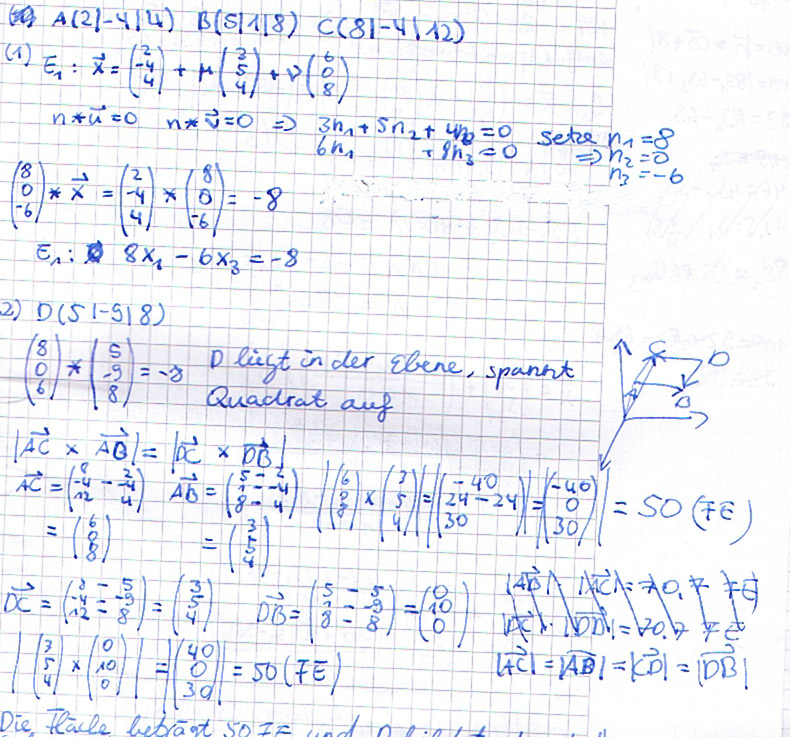 A(2|-4|4) B(5|1|8) C(8|-4|12)
(1) E₁: x⃗ = (2 -4 4) + μ (3 5 4) + ν (6 0 8)
n*u⃗=0 n*v⃗=0 => 3n₁+5n₂+4n₃=0 setze n₁=8
6n₁ +8n₃=0 => n₂=0
n₃=-6
(8 0 -6) * x⃗ = (2 -4 4) * (8 0 -6) = -8
E₁: 8x₁ - 6x₃ = -8
2) D(5|-9|8)
(8 0 6) * (5 -9 8) = -8 D liegt in der Ebene, spannt
Quadrat auf
C D
B
|AC⃗ x AB⃗| = |DC⃗ x DB⃗|
AC⃗ = (8 - 2 -4 - -4 12 - 4) AB⃗ = (5 - 2 1 - -4 8 - 4) |(6 0 8) x (3 5 4)| = |(-40 24-24 30)| = |(-40 0 30)| = 50 (FE)
= (6 0 8) = (3 5 4)
DC⃗ = (8 - 5 -4 - -9 12 - 8) = (3 5 4) DB⃗ = (5 - 5 1 - -9 8 - 8) = (0 10 0)
|AC⃗| = |AB⃗| = |CD⃗| = |DB⃗|
|(3 5 4) x (0 10 0)| = |(40 0 30)| = 50 (FE)
Die Fläche beträgt 50 FE und D